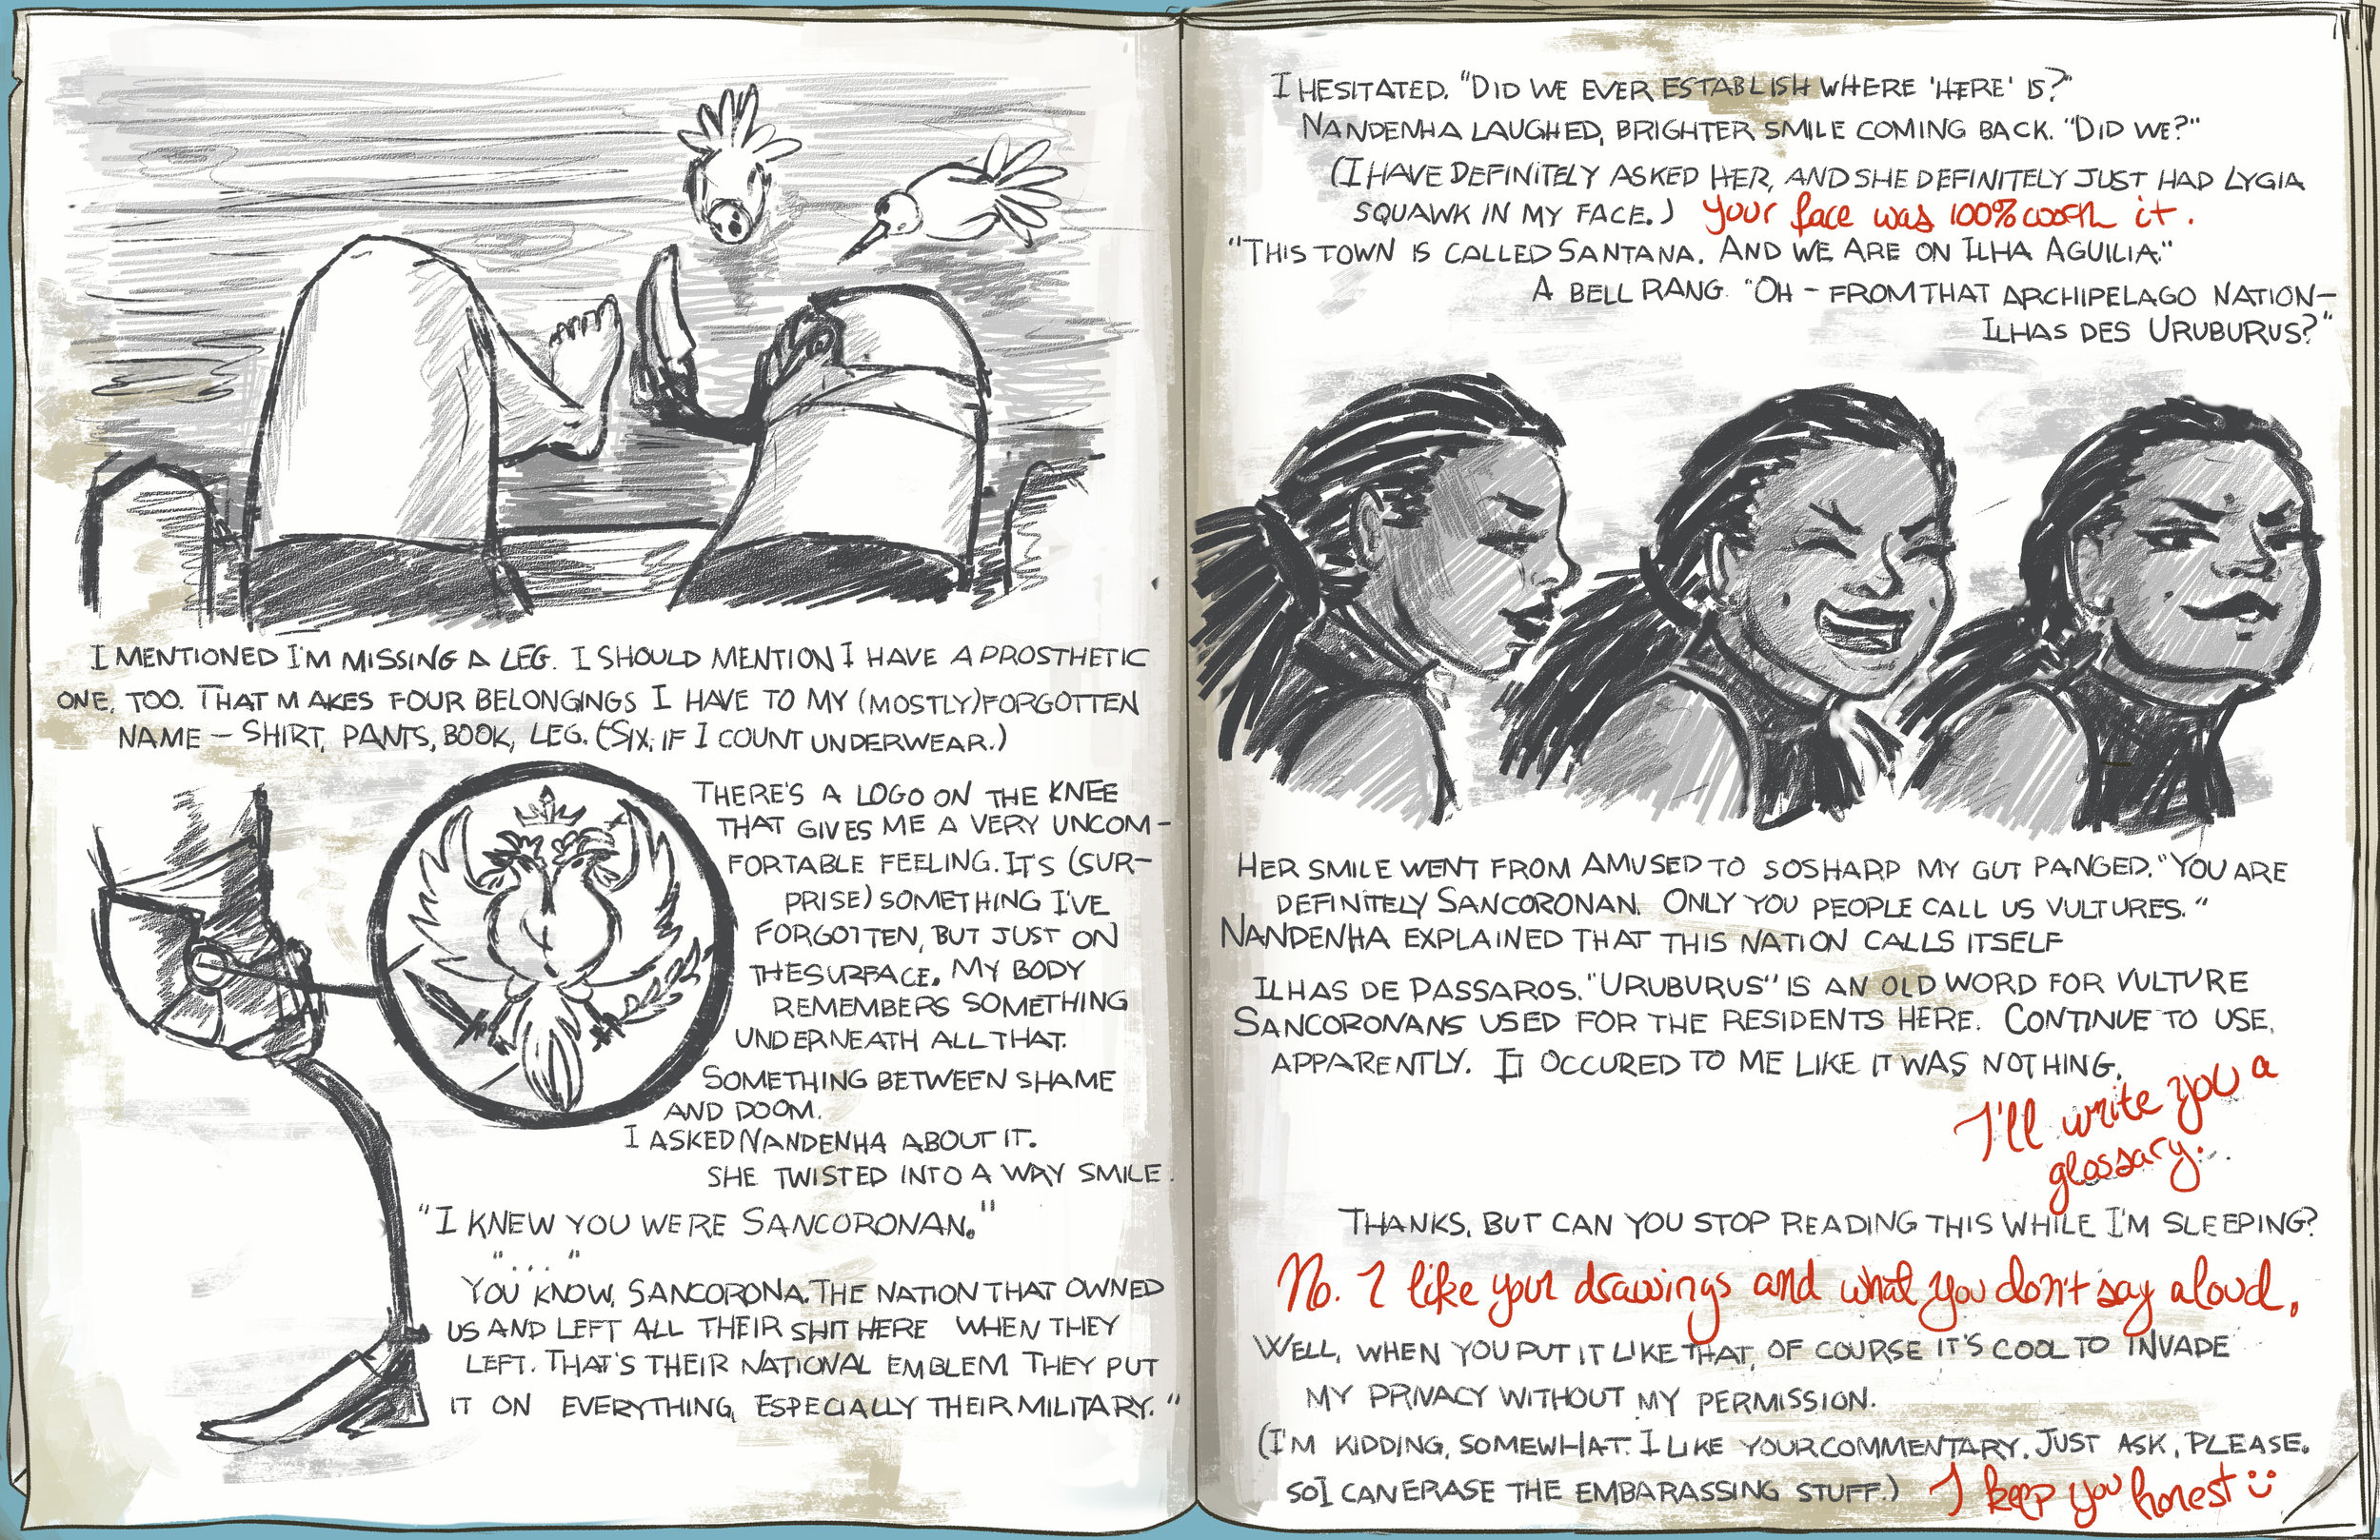 I MENTIONED I'M MISSING A LEG. I SHOULD MENTION I HAVE A PROSTHETIC
ONE, TOO. THAT MAKES FOUR BELONGINGS I HAVE TO MY (MOSTLY) FORGOTTEN
NAME – SHIRT, PANTS, BOOK, LEG. (SIX, IF I COUNT UNDERWEAR.)
THERE'S A LOGO ON THE KNEE
THAT GIVES ME A VERY UNCOM-
FORTABLE FEELING. IT'S (SUR-
PRISE) SOMETHING I'VE
FORGOTTEN, BUT JUST ON
THE SURFACE. MY BODY
REMEMBERS SOMETHING
UNDERNEATH ALL THAT.
SOMETHING BETWEEN SHAME
AND DOOM.
I ASKED NANDENHA ABOUT IT.
SHE TWISTED INTO A WRY SMILE.
"I KNEW YOU WERE SANCORONAN."
"..."
YOU KNOW, SANCORONA. THE NATION THAT OWNED
US AND LEFT ALL THEIR SHIT HERE WHEN THEY
LEFT. THAT'S THEIR NATIONAL EMBLEM THEY PUT
IT ON EVERYTHING, ESPECIALLY THEIR MILITARY."
I HESITATED. "DID WE EVER ESTABLISH WHERE 'HERE' IS?"
NANDENHA LAUGHED, BRIGHTER SMILE COMING BACK. "DID WE?"
(I HAVE DEFINITELY ASKED HER, AND SHE DEFINITELY JUST HAD LYGIA
SQUAWK IN MY FACE.) Your face was 100% worth it.
"THIS TOWN IS CALLED SANTANA. AND WE ARE ON ILHA AGUILIA."
A BELL RANG. "OH – FROM THAT ARCHIPELAGO NATION –
ILHAS DES URUBURUS?"
HER SMILE WENT FROM AMUSED TO SO SHARP MY GUT PANGED. "YOU ARE
DEFINITELY SANCORONAN. ONLY YOU PEOPLE CALL US VULTURES."
NANDENHA EXPLAINED THAT THIS NATION CALLS ITSELF
ILHAS DE PASSAROS. "URUBURUS" IS AN OLD WORD FOR VULTURE
SANCORONANS USED FOR THE RESIDENTS HERE. CONTINUE TO USE,
APPARENTLY. IT OCCURED TO ME LIKE IT WAS NOTHING.
I'll write you a
glossary.
THANKS, BUT CAN YOU STOP READING THIS WHILE I'M SLEEPING?
No. I like your drawings and what you don't say aloud.
WELL, WHEN YOU PUT IT LIKE THAT, OF COURSE IT'S COOL TO INVADE
MY PRIVACY WITHOUT MY PERMISSION.
(I'M KIDDING, SOMEWHAT. I LIKE YOUR COMMENTARY. JUST ASK, PLEASE.
SO I CAN ERASE THE EMBARASSING STUFF.) I keep you honest :)